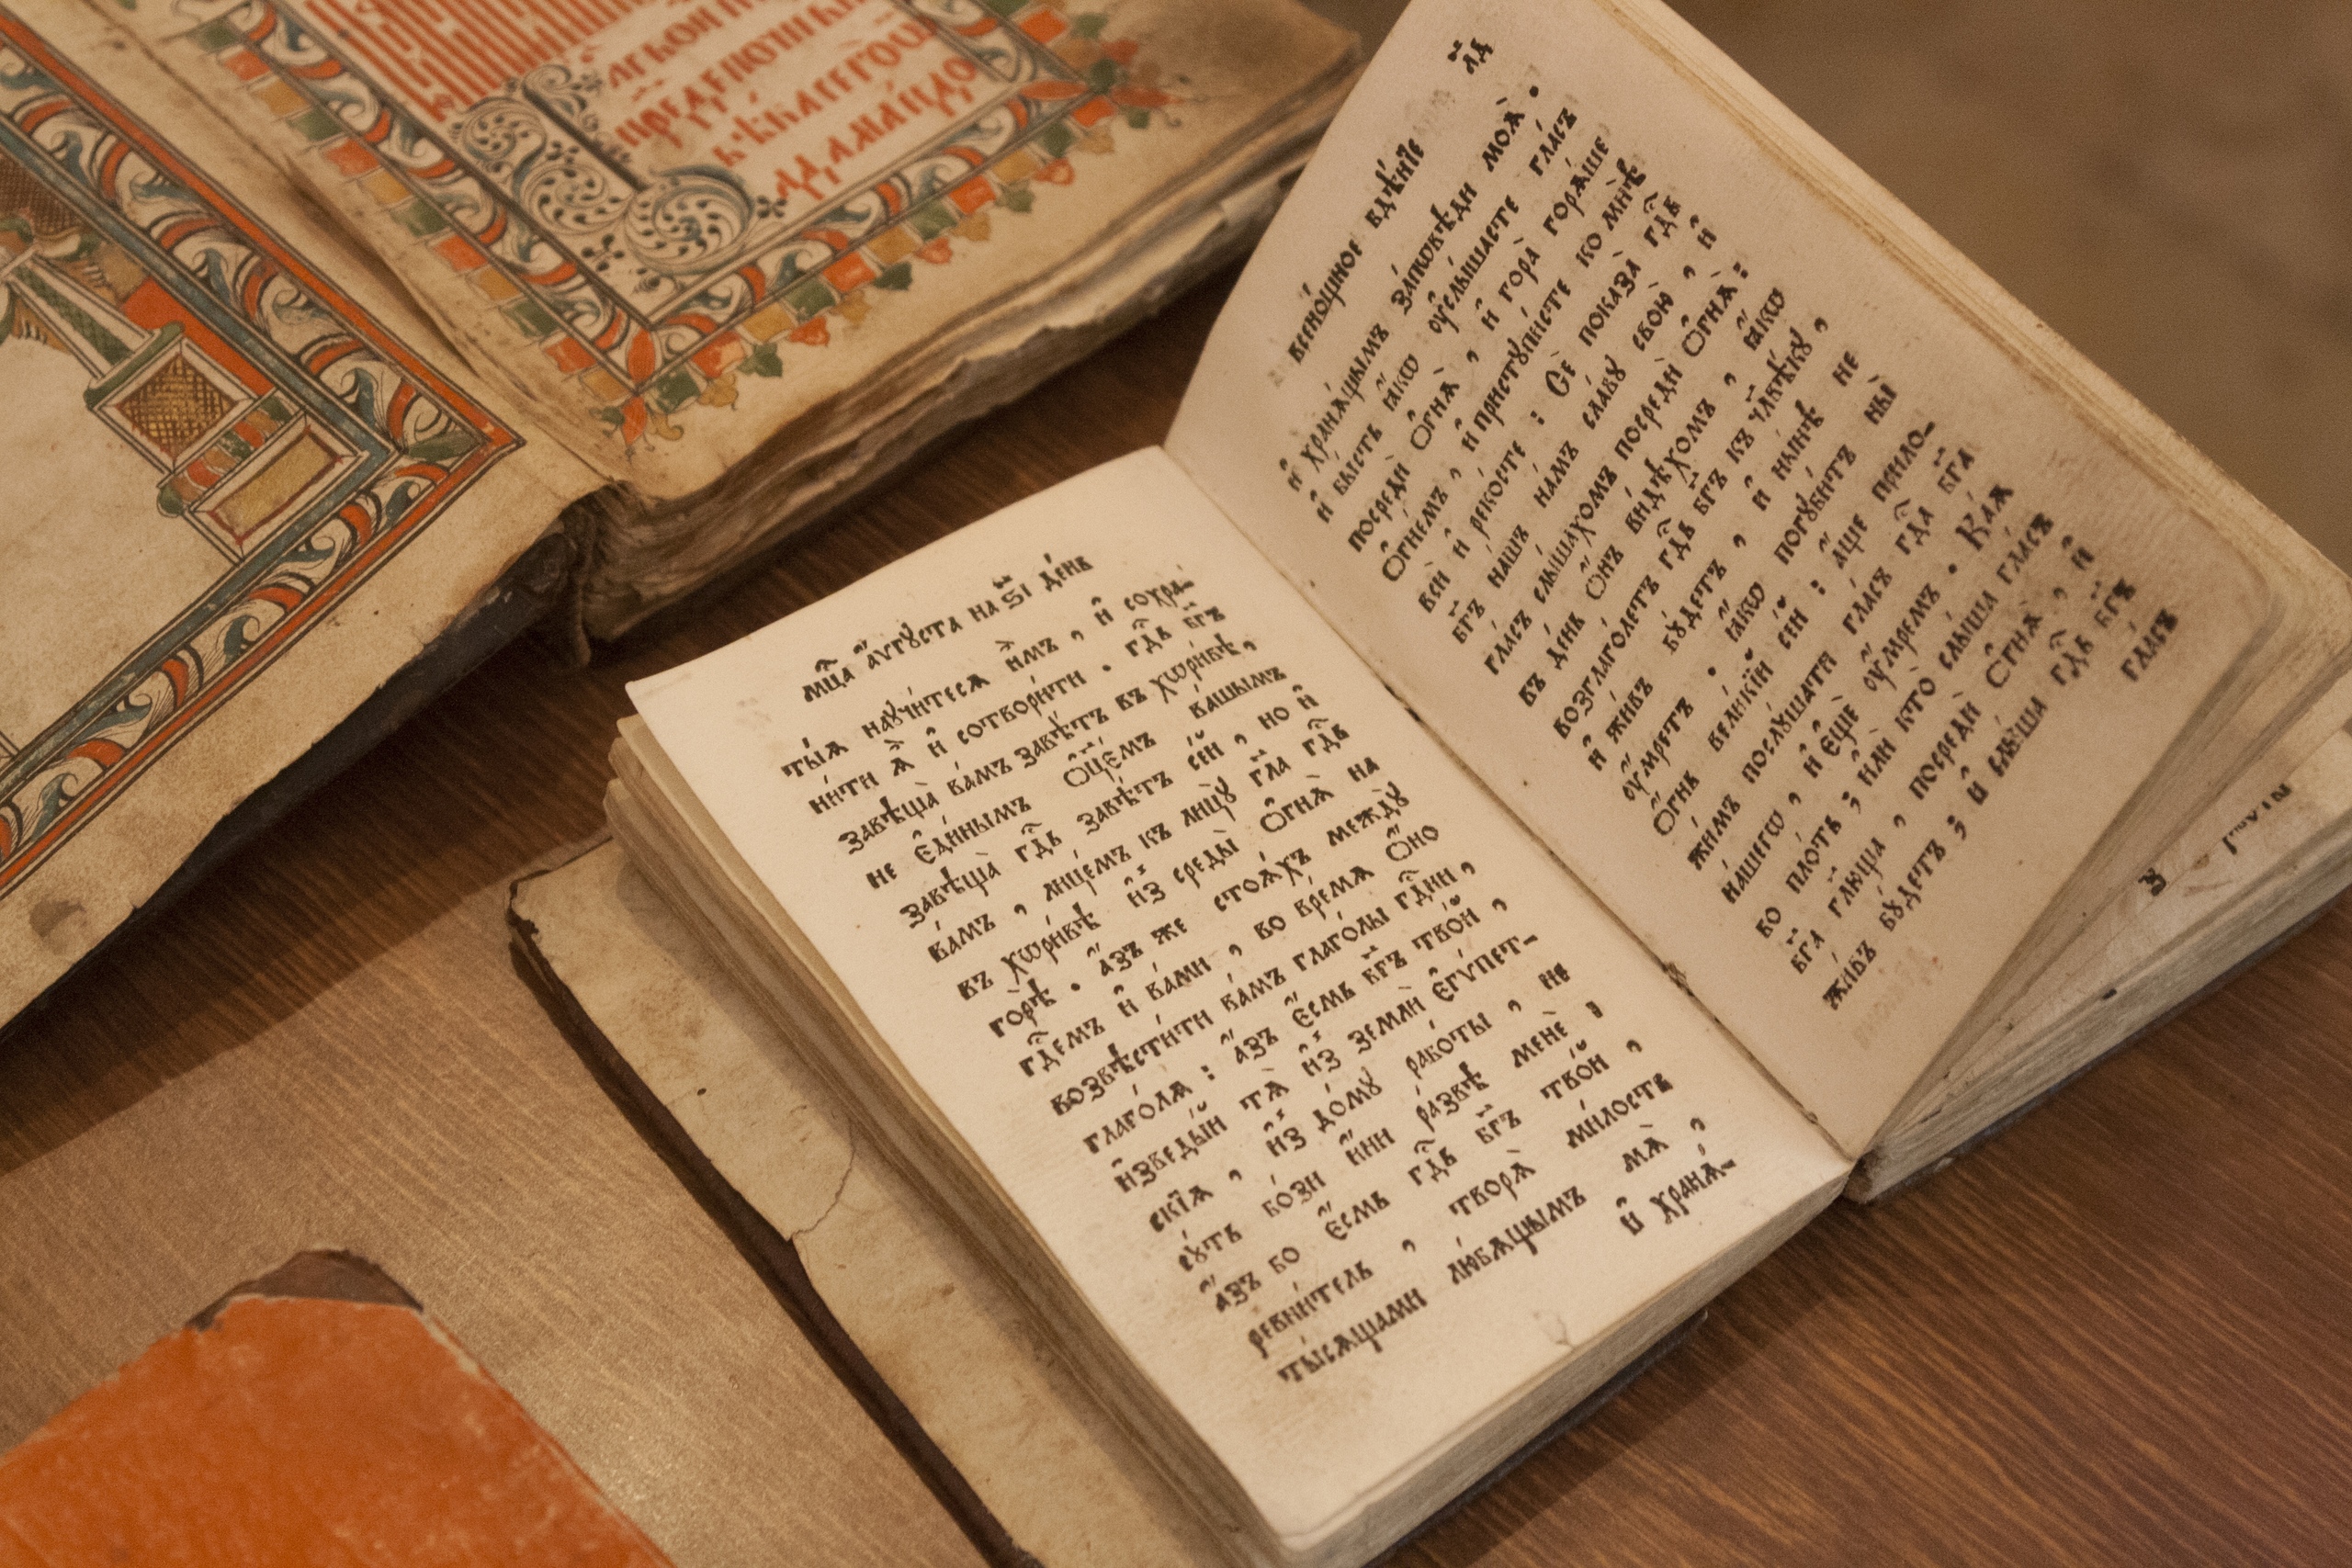 мц҃а а҆́ѵгꙋста на ѕ҃і де́нь
ты́ѧ наꙋчи́тесѧ и҆̀мъ , и҆ сохра-
ни́ти ѧ҆̀ и҆ сотвори́ти . гдⷭ҇ь бг҃ъ
завѣща̀ ва́мъ завѣ́тъ въ хѡри́вѣ ,
не є҆ди̑нымъ ѻ҆ц҃є́мъ ва́шымъ
завѣща̀ гдⷭ҇ь завѣ́тъ се́й , но и҆
ва́мъ , лице́мъ къ лицꙋ̀ гл҃а гдⷭ҇ь
въ хѡри́вѣ и҆з̾ среды̀ ѻ҆гнѧ̀ на
горѣ̀ . а҆́зъ же стоѧ́хъ междꙋ̀
гдⷭ҇емъ и҆ ва́ми , во вре́мѧ ѻ҆́но
возвѣсти́ти ва́мъ глаго́лы гдⷭ҇ни ,
глаго́лѧ : а҆́зъ є҆́смь бг҃ъ тво́й ,
и҆зведы́й тѧ̀ и҆з̾ землѝ є҆гѵ́пет-
скїѧ , и҆з̾ до́мꙋ рабо́ты , не
сꙋ́ть бо́зи и҆ні́и ра́звѣ менє̀ ,
а҆́зъ бо є҆́смь гдⷭ҇ь бг҃ъ тво́й ,
ревни́тель , творѧ̀ ми́лость
ты́сѧщами лю́бѧщымъ мѧ̀ ,
и҆ хранѧ́-
всено́щное бдѣ́нїе
л҃д
и҆ хранѧ́щымъ за́пѡвѣди моѧ̀ .
и҆ бы́сть ꙗ҆́кѡ ᲂу҆слы́шасте гла́съ
посредѝ ѻ҆гнѧ̀ , и҆ гора̀ горѧ́ше
ѻ҆гне́мъ , и҆ пристꙋпи́сте ко мнѣ̀
всѝ и҆ реко́сте : Сѐ показа̀ гдⷭ҇ь
бг҃ъ на́шъ на́мъ сла́вꙋ свою̀ , и҆
гла́съ слы́шахомъ посредѝ ѻ҆гнѧ̀ :
въ де́нь ѻ҆́нъ ви́дѣхомъ , ꙗ҆́кѡ
возглаго́летъ гдⷭ҇ь бг҃ъ къ чл҃вѣ́кꙋ ,
и҆ жи́въ бꙋ́детъ , и҆ ны́нѣ не
ᲂу҆́мретъ . ꙗ҆́кѡ погꙋби́тъ ны̀
ѻ҆́гнь вели́кїй се́й : а҆́ще прило-
жи́мъ послꙋ́шати гла́съ гдⷭ҇а бг҃а
на́шегѡ , и҆ є҆щѐ ᲂу҆́мремъ . Ка́ѧ
бо пло́ть ; и҆лѝ кто̀ слы́ша гла́съ
бг҃а гл҃юща , посредѝ ѻ҆гнѧ̀ , и҆
жи́въ бꙋ́детъ ; и҆ слы́ша гдⷭ҇ь бг҃ъ
гла́съ